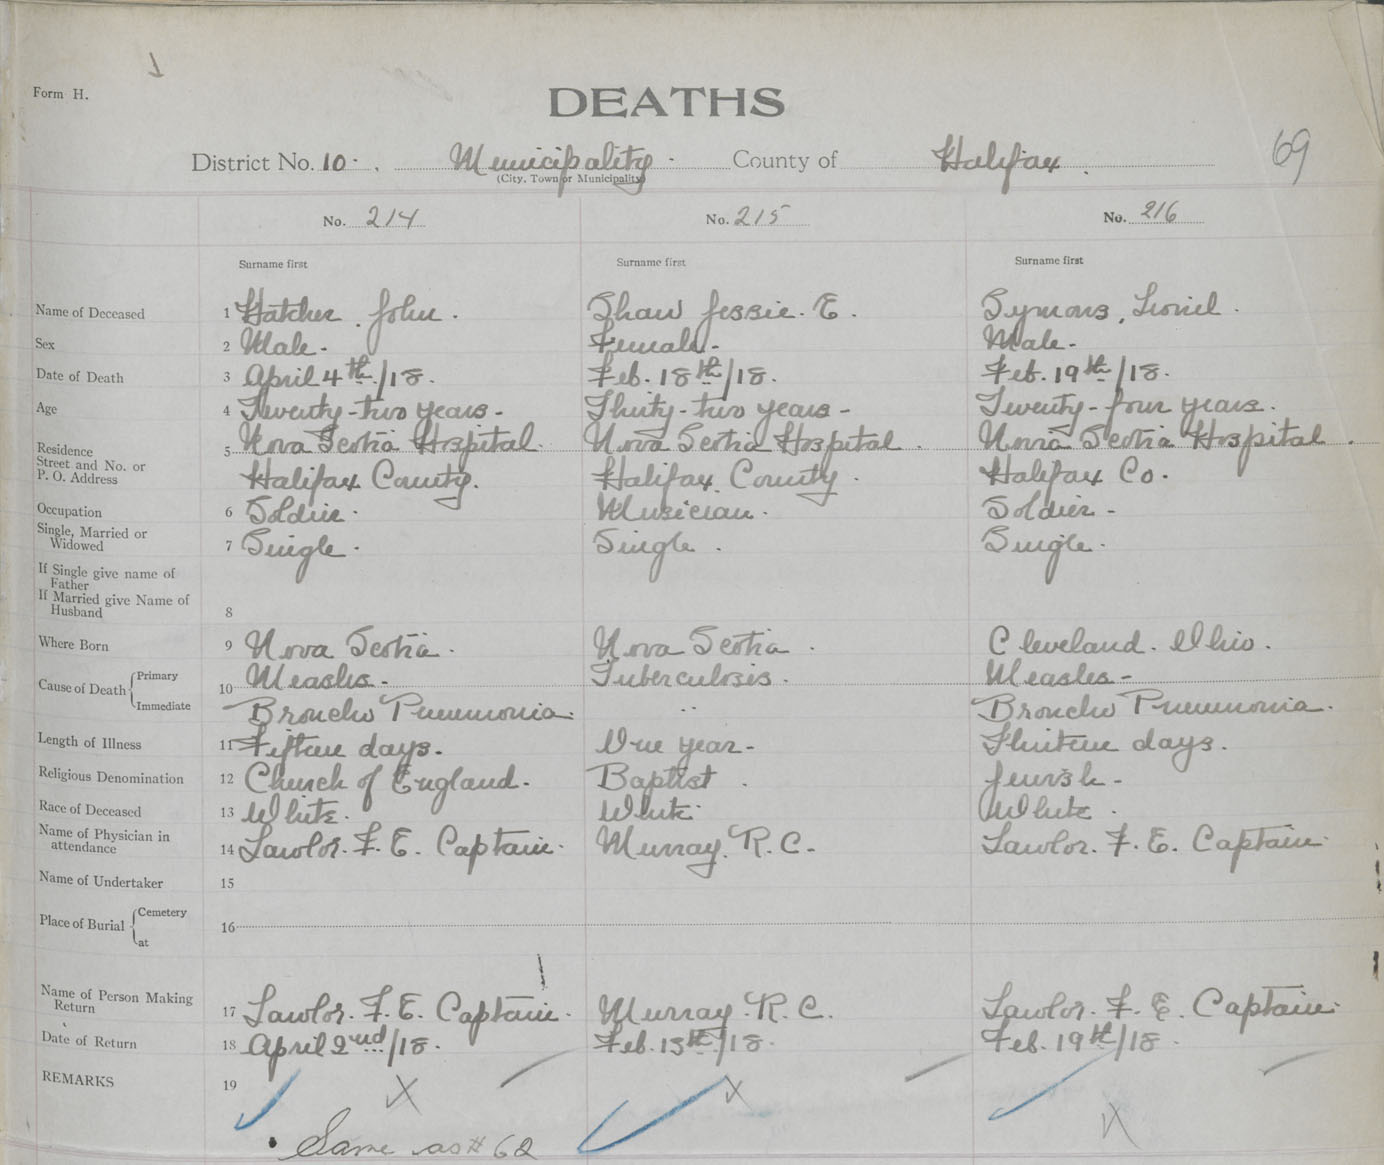 Form H.
DEATHS
69
District No. 10 . Municipality County of Halifax
(City, Town or Municipality)
No. 214 No. 215 No. 216
Surname first Surname first Surname first
Name of Deceased 1 Hatcher, John. Shaw Jessie. E. Symons, Lionel.
Sex 2 Male. Female. Male.
Date of Death 3 April 4th/18. Feb. 18th/18. Feb. 19th/18.
Age 4 Twenty-two years- Thirty-two years- Twenty-four years.
Residence 5 Nova Scotia Hospital. Nova Scotia Hospital. Nova Scotia Hospital.
Street and No. or
P. O. Address Halifax County. Halifax County. Halifax Co.
Occupation 6 Soldier. Musician. Soldier-
Single, Married or
Widowed 7 Single. Single. Single.
If Single give name of
Father
If Married give Name of
Husband 8
Where Born 9 Nova Scotia. Nova Scotia. Cleveland. Ohio.
Cause of Death Primary 10 Measles- Tuberculosis. Measles-
Immediate Broncho Pneumonia. " Broncho Pneumonia.
Length of Illness 11 Fifteen days. One year- Thirteen days.
Religious Denomination 12 Church of England. Baptist. Jewish-
Race of Deceased 13 White. White. White.
Name of Physician in
attendance 14 Lawlor. F. E. Captain. Murray. R. C. Lawlor. F. E. Captain.
Name of Undertaker 15
Place of Burial Cemetery 16
at
Name of Person Making
Return 17 Lawlor. F. E. Captain. Murray. R. C. Lawlor. F. E. Captain.
Date of Return 18 April 2nd/18. Feb. 18th/18. Feb. 19th/18.
REMARKS 19 X X X
Same as # 62